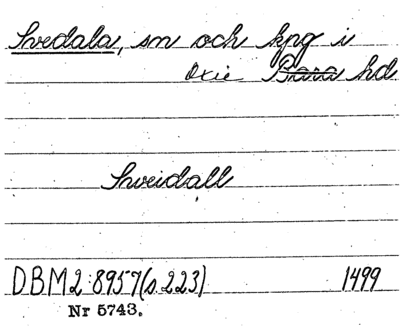 Svedala, sn och kpg i
Oxie Bara hd
Sweidall
DBM2:8957(s.223) 1499
Nr 5743.